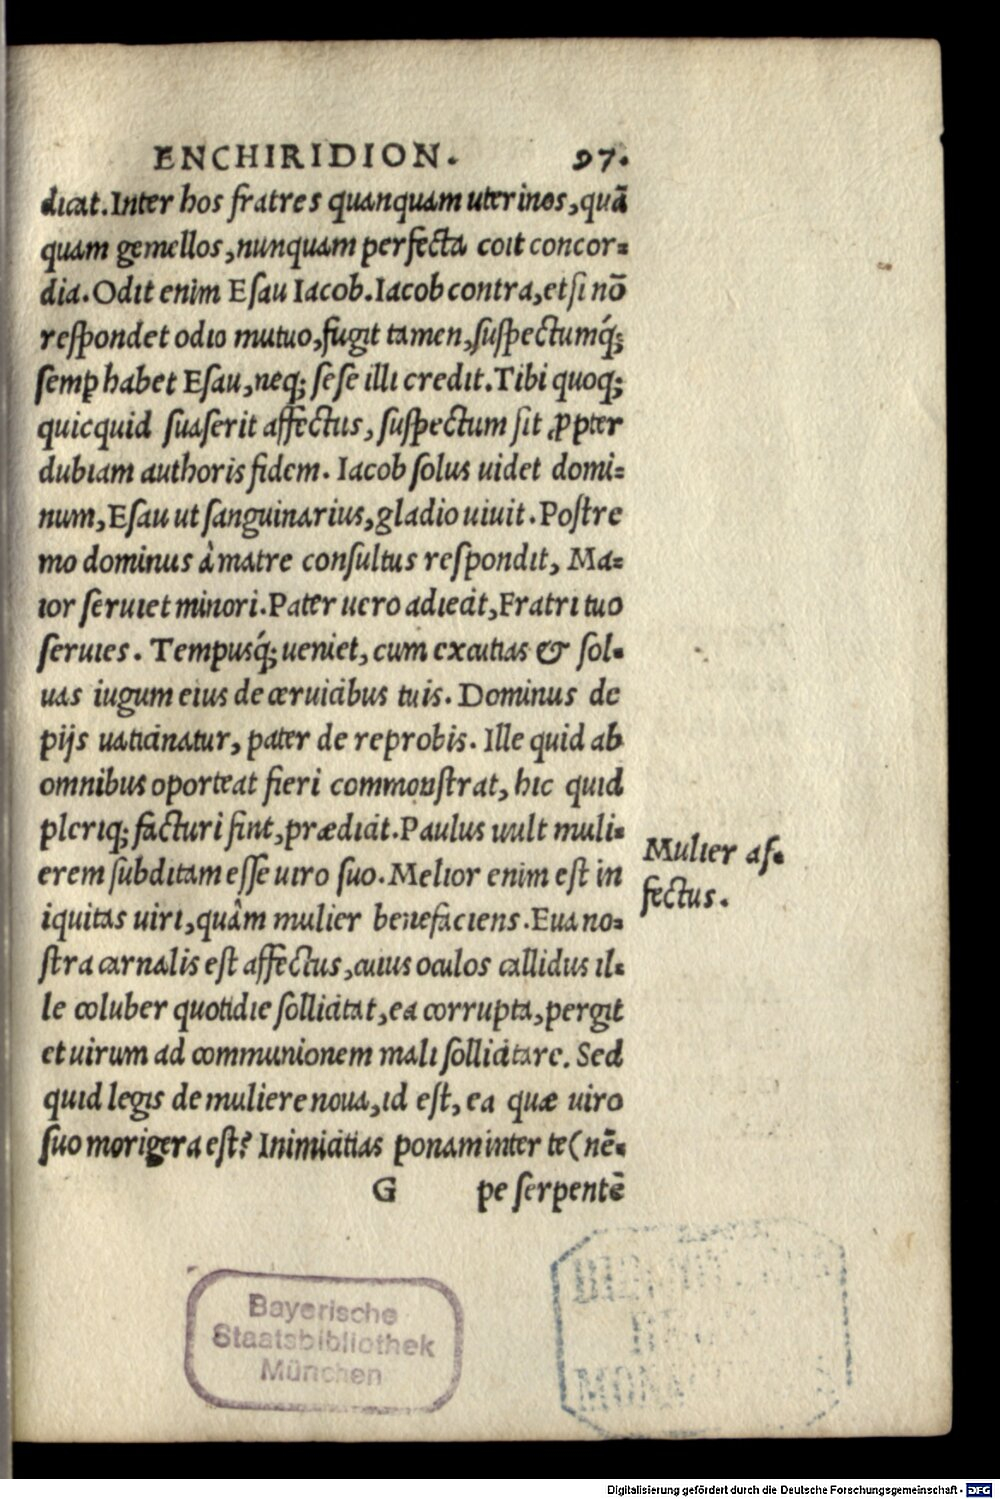 ENCHIRIDION. 97.
dicat. Inter hos fratres quanquam uterinos, quā
quam gemellos, nunquam perfecta coit concor=
dia. Odit enim Esau Iacob. Iacob contra, etsi nō
respondet odio mutuo, fugit tamen, suspectumq́;
semꝑ habet Esau, neq; sese illi credit. Tibi quoq;
quicquid suaserit affectus, suspectum sit ꝓpter
dubiam authoris fidem. Iacob solus uidet domi=
num, Esau ut sanguinarius, gladio uiuit. Postre
mo dominus à matre consultus respondit, Ma=
ior seruiet minori. Pater uero adiecit, Fratri tuo
seruies. Tempusq́; ueniet, cum excutias & sol=
uas iugum eius de ceruicibus tuis. Dominus de
pijs uaticinatur, pater de reprobis. Ille quid ab
omnibus oporteat fieri commonstrat, hic quid
pleriq; facturi sint, prædicit. Paulus uult muli=
erem subditam esse uiro suo. Melior enim est in
iquitas uiri, quàm mulier benefaciens. Eua no=
stra carnalis est affectus, cuius oculos callidus il=
le coluber quotidie sollicitat, ea corrupta, pergit
et uirum ad communionem mali sollicitare. Sed
quid legis de muliere noua, id est, ea quæ uiro
suo morigera est? Inimicitias ponam inter te (nē=
G pe serpentē
Mulier af=
fectus.
Bayerische
Staatsbibliothek
München
Digitalisierung gefördert durch die Deutsche Forschungsgemeinschaft - DFG